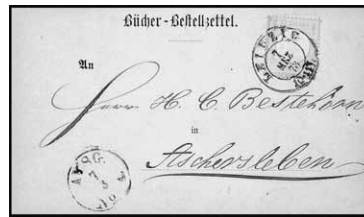 Bücher-Bestellzettel.
LEIPZIG
7
MRZ
An
Herrn H. C. Bestehorn
in
Aschersleben
AUSG.
7
3